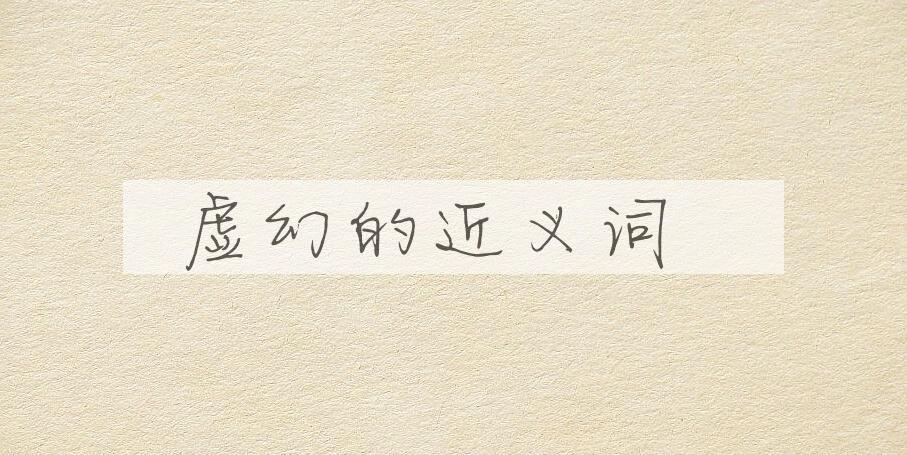 虚幻的近义词